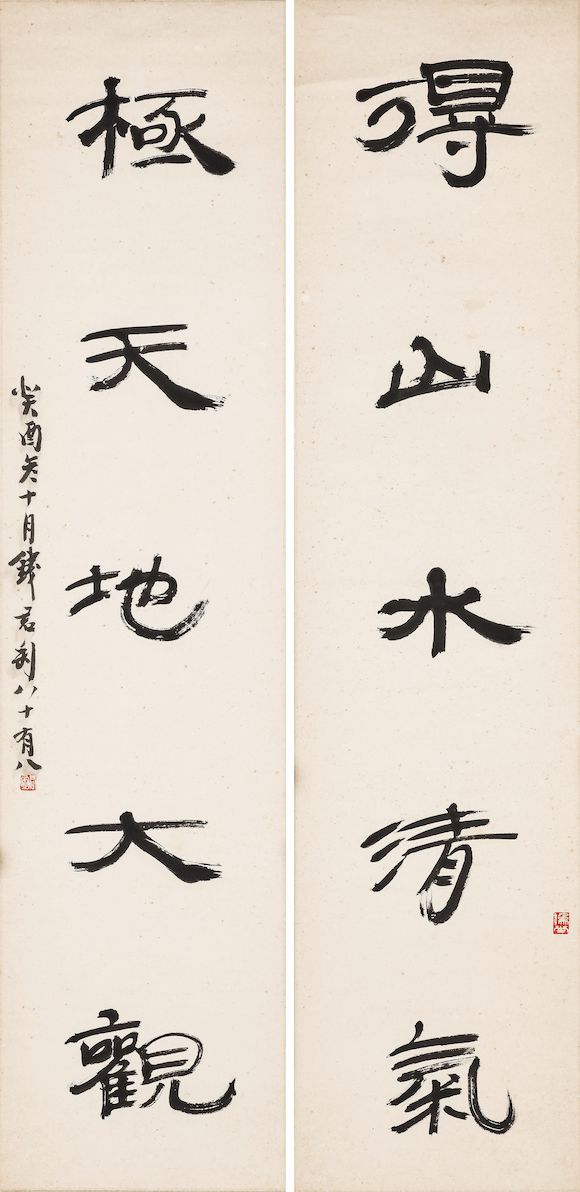 得山水清氣
極天地大觀
癸酉冬十月錢君匋八十有八